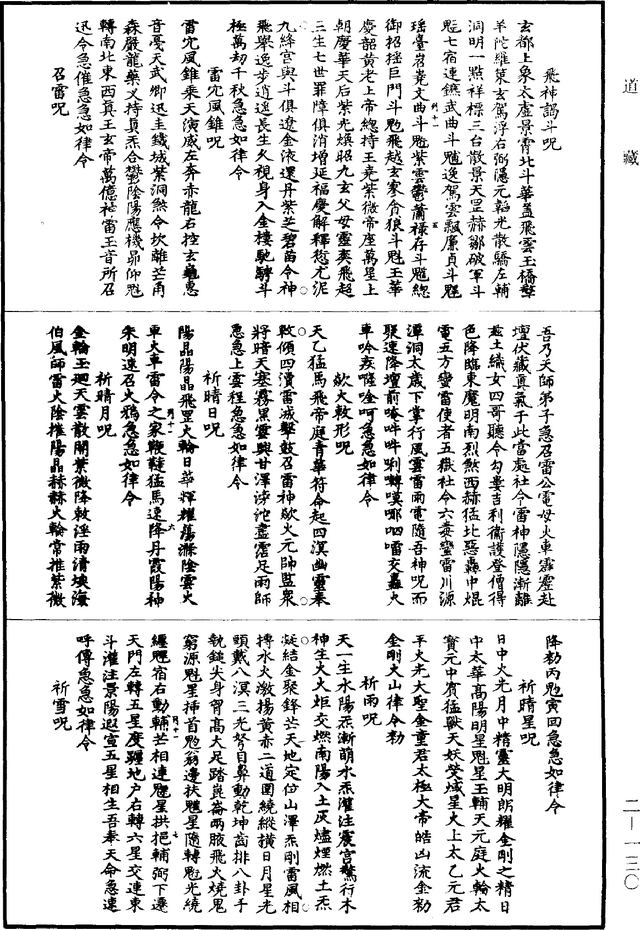 道藏
飛神謁斗呪
玄都上象太虛景霄北斗華蓋飛雲玉橋擊
羊陀羅策玄駕浮右弼隱元韜光散驕左輔
洞明一點祥標三台散景天罡赫鄒破軍斗
魁七宿連鑣武曲斗魁逸駕雲飄廉貞斗魁
瑤臺岧嶤文曲斗魁紫雲鬱蕭祿存斗魁總
御招搖巨門斗魁飛越玄家貪狼斗魁玉華
慶韶黃老上帝總持王堯紫微帝座萬星上
朝慶華天后紫光煥昭九玄父母靈爽飛超
三生七世罪障俱消增延福慶解釋愆尤泥
九絳宮與斗俱遼金液還丹紫芝碧苗令神
飛舉逸步逍遙長生久視身入金樓馳騁斗
極萬劫千秋急急如律令
雷穴風錐呪
雷穴風錐乘天演威左奔赤龍右控玄龜惠
音憂天武卿迅圭鐵城紫洞煞令坎離芒角
森嚴龍藥叉持貞炁合鬱陰陽應機昴仰魁
轉南北東西真王玄帝萬億神雷玉音所召
迅令急催急急如律令
召雷呪
吾乃天師弟子急召雷公電母火車霹靂赴
壇伏藏真氣于此當處社令雷神隱隱漸離
茲土織女四哥聽令勾婁吉利衞護登僧得
色降臨東魔明南烈煞西赫猛北惡轟中焜
雷五方蠻雷使者五嶽社令六毒蠻雷川源
潭洞太歲下掌行風雲雷雨電隨吾神呪而
聚速降壇前
車吟
急急如律令
歘火敕形呪
天乙猛馬飛帝庭青華符命起四溟幽靈奉
敕傾四瀆雷滅擊鼓召雷神歘火元帥監衆
將暗天塞霧黑靈興甘澤滂沱盡霑足雨師
急急上臺程急急如律令
祈晴日呪
陽晶陽晶飛罡火輪日華輝耀蕩滌陰雲火
車火車雷令之家鞭韃猛馬速降丹霞陽神
朱明速召火鴉急急如律令
祈晴月呪
金輪玉廻天雲散開紫微降敕淫雨清埃海
伯風師雷火陰摧陽晶赫赫火輪常推紫微
降勑丙魁寅回急急如律令
祈晴星呪
日中火光月中精靈大明朗耀金剛之精日
中太華高陽明星魁星玉輔天元庭火輪太
寶元中賓猛獸天妖熒惑星火上太乙元君
平火光大聖金童君太極大帝皓凶流金勑
金剛火山律令勑
祈雨呪
天一生水陽炁漸萌水炁灌注震宮驚行木
神生火火炬交燃南陽入土灰爐煙燃土炁
凝結金聚鋒芒天地定位山澤炁剛雷風相
搏水火激揚黃赤二道圍繞縱橫日月星光
頭戴八溟三光背目鼻動乾坤齒排八卦手
執鎚尖身貿高大足踏崑崙兩腋飛火燒鬼
窮源魁星掃首魁翁邊扶魓星隨轉魁光繞
纏魓宿右動輔芒相連魓星拱挹輔弼下遶
天門左轉五星度躔地户右轉六星交連東
斗灌注景陽遐宣五星相生吾奉天命急速
呼傳急急如律令
祈雪呪
二一一三〇